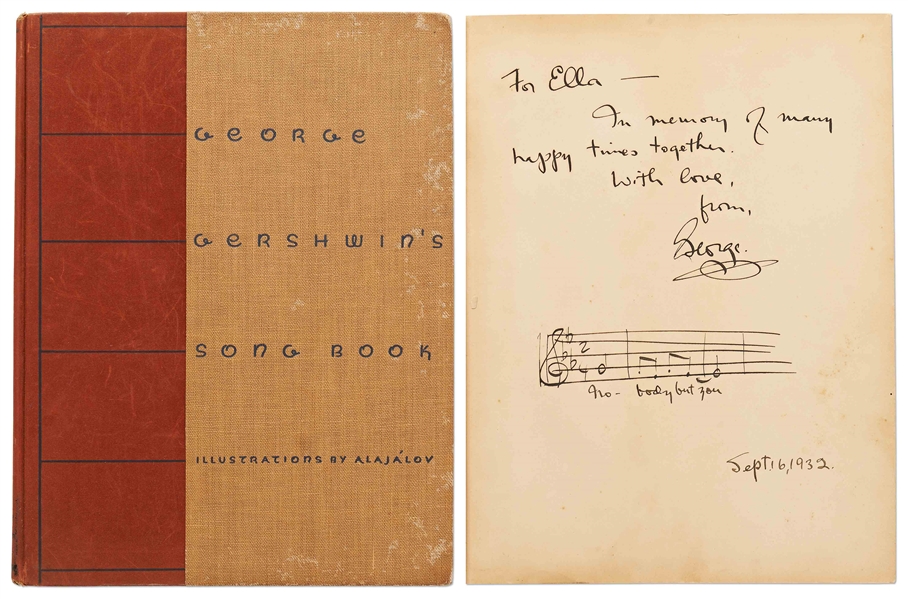 GEORGE
GERSHWIN'S
SONG BOOK
ILLUSTRATIONS BY ALAJÁLOV
For Ella —
In memory of many
happy times together.
With love,
from,
George.
No- body but you
Sept. 16, 1932.